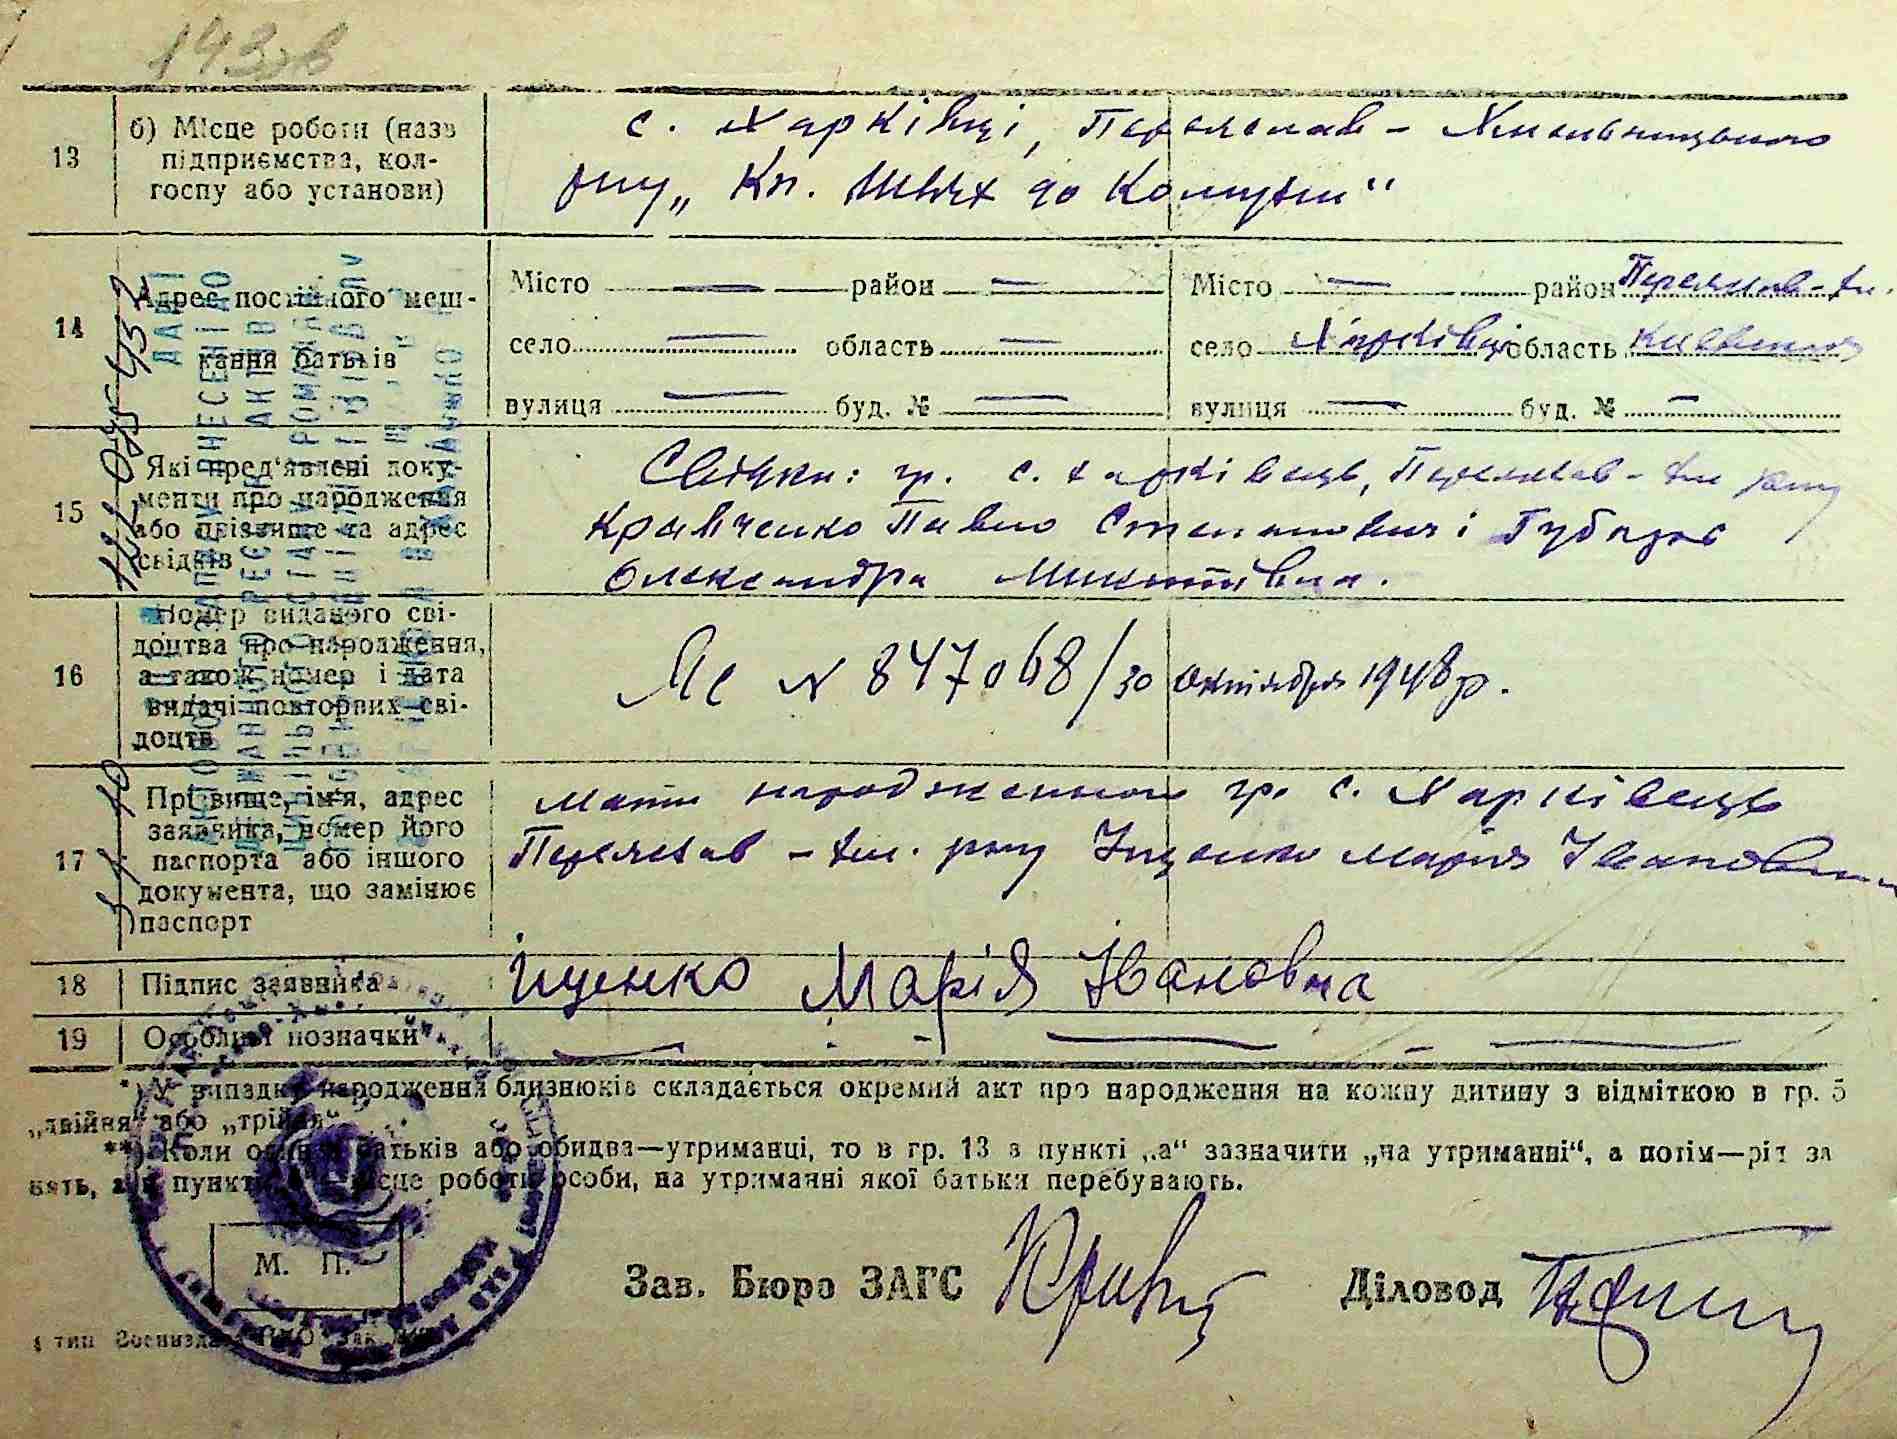 143зв
13
б) Місце роботи (назв
підприємства, кол-
госпу або установи)
с. Харківці, Переяслав - Хмельницького
р-ну „Кп. Шлях до Комуни“
14
Адрес постійного меш-
кання батьків
Місто — район —
село — область —
вулиця — буд. № —
Місто — район Переяслав-Хм.
село Харківці область Київська
вулиця — буд. № —
15
Які пред'явлені доку-
менти про народження
або прізвище та адрес
свідків
Свідки: гр. с. Харківець, Переяслав - Хм р-ну
Кравченко Павло Степанович і
Олександра Микитівна.
16
Номер виданого сві-
доцтва про народження,
а також номер і дата
видачі повторних сві-
доцтв
ЯС N 847068/30 октября 1948 р.
17
Прізвище, ім'я, адрес
заявника, номер його
паспорта або іншого
документа, що замінює
паспорт
Мати народженого гр. с. Харківець
Переяслав - Хм. р-ну Іщенко Марія Івановна
18
Підпис заявника
Іщенко Марія Івановна
19
Особливі позначки
*) У випадку народження близнюків складається окремий акт про народження на кожну дитину з відміткою в гр. 5
„двійня“ або „трійня“.
**) Коли один з батьків або обидва—утриманці, то в гр. 13 в пункті „а“ зазначити „на утриманні“, а потім—рід за
нять, а в пункті місце роботи особи, на утриманні якої батьки перебувають.
М. П.
Зав. Бюро ЗАГС
Діловод